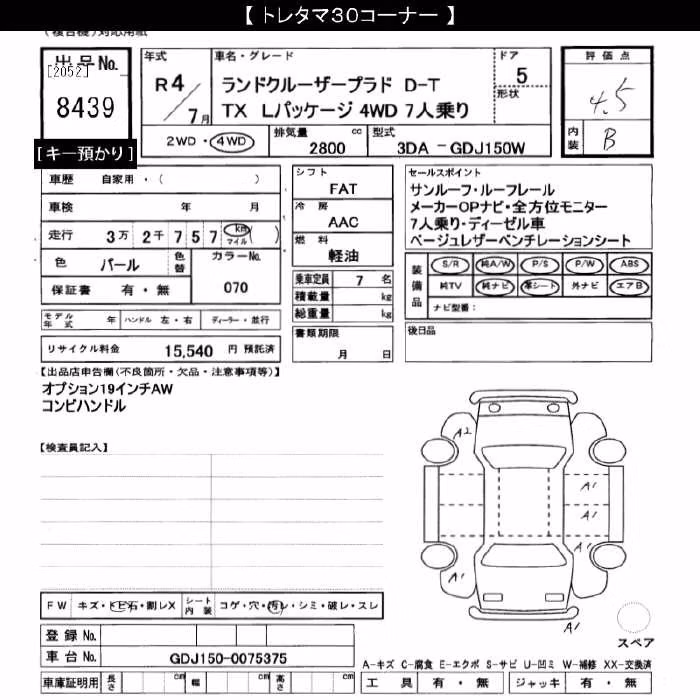 【 トレタマ30コーナー 】
(複合機)対応用紙
出品No.
[2052]
8439
[キー預かり]
年式
R4/7月
車名・グレード
ランドクルーザープラド D-T
TX Lパッケージ 4WD 7人乗り
ドア
5
形状
2WD・4WD
排気量 cc
2800
型式
3DA－GDJ150W
評価点
4.5
内装
B
車歴 自家用・( )
車検 年 月
走行 3万 2千 7 5 7 km マイル ( )
色 パール
色替
カラーNo.
070
保証書 有・無
シフト
FAT
冷房
AAC
燃料
軽油
乗車定員 7 名
積載量 kg
総重量 kg
書類期限
月 日
セールスポイント
サンルーフ・ルーフレール
メーカーOPナビ・全方位モニター
7人乗り・ディーゼル車
ベージュレザーベンチレーションシート
装備品
S/R 純A/W P/S P/W ABS
純TV 純ナビ 革シート 外ナビ エアB
ナビ型番：
モデル年式 年 ハンドル 左・右 ディーラー・並行
リサイクル料金 15,540 円 預託済
後日品
【出品店申告欄(不良箇所・欠品・注意事項等)】
オプション19インチAW
コンビハンドル
【検査員記入】
A2
A1
A1
A1
A1
A1
A1
スペア
FW キズ・トビ石・割レX
シート内装 コゲ・穴・汚レ・シミ・破レ・スレ
登録No.
車台No. GDJ150-0075375
車庫証明用 長さ cm 幅 cm 高さ cm
A-キズ C-腐食 E-エクボ S-サビ U-凹ミ W-補修 XX-交換済
工具 有・無 ジャッキ 有・無